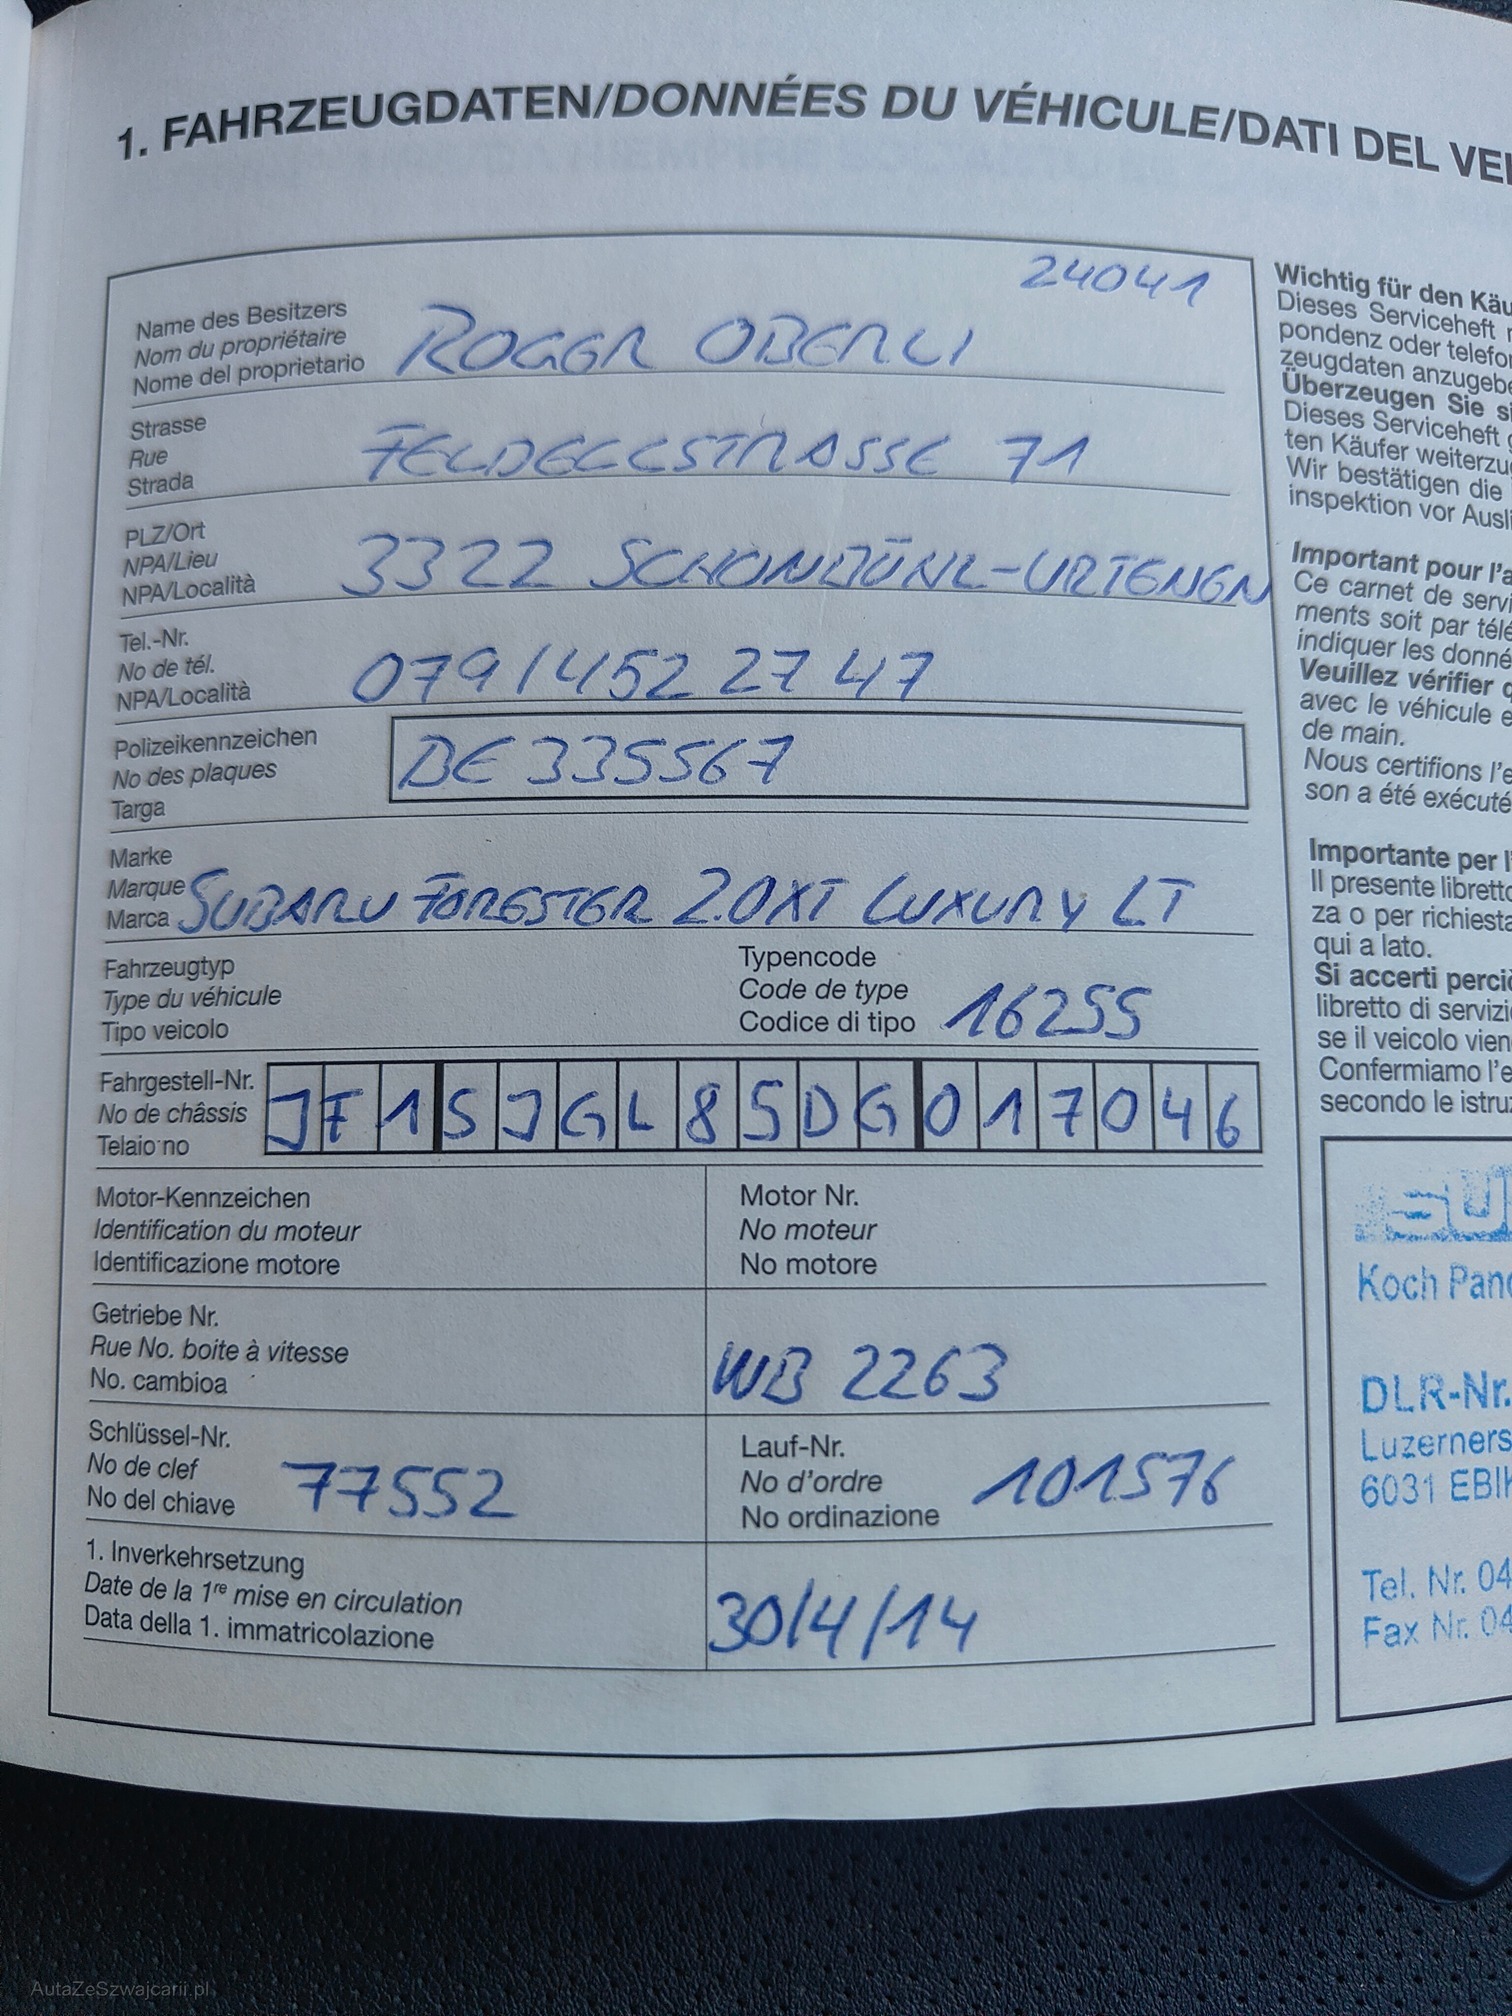 1. FAHRZEUGDATEN/DONNÉES DU VÉHICULE/DATI DEL VEI
24041
Name des Besitzers
Nom du propriétaire
Nome del proprietario
ROGER OBERLI
Strasse
Rue
Strada
FELDEGGSTRASSE 71
PLZ/Ort
NPA/Lieu
NPA/Località
3322 SCHÖNBÜHL-URTENEN
Tel.-Nr.
No de tél.
NPA/Località
079/452 27 47
Polizeikennzeichen
No des plaques
Targa
BE 335567
Marke
Marque
Marca
SUBARU FORESTER 2.0XT LUXURY LT
Fahrzeugtyp
Type du véhicule
Tipo veicolo
Typencode
Code de type
Codice di tipo
1G255
Fahrgestell-Nr.
No de châssis
Telaio no
JF1SJGL85DG017046
Motor-Kennzeichen
Identification du moteur
Identificazione motore
Motor Nr.
No moteur
No motore
Getriebe Nr.
Rue No. boite à vitesse
No. cambioa
WB 2263
Schlüssel-Nr.
No de clef
No del chiave
77552
Lauf-Nr.
No d'ordre
No ordinazione
101576
1. Inverkehrsetzung
Date de la 1re mise en circulation
Data della 1. immatricolazione
30/4/14
Wichtig für den Käu
Dieses Serviceheft
pondenz oder telefo
zeugdaten anzugebe
Überzeugen Sie si
Dieses Serviceheft g
ten Käufer weiterzu
Wir bestätigen die
inspektion vor Ausli
Important pour l'a
Ce carnet de servi
ments soit par télé
indiquer les donné
Veuillez vérifier q
avec le véhicule e
de main.
Nous certifions l'e
son a été exécuté
Importante per l'
Il presente librett
za o per richiesta
qui a lato.
Si accerti perciò
libretto di servizi
se il veicolo vien
Confermiamo l'e
secondo le istru
SU
Koch Pan
DLR-Nr.
Luzerners
6031 EBI
Tel. Nr. 04
Fax Nr. 04
AutaZeSzwajcarii.pl